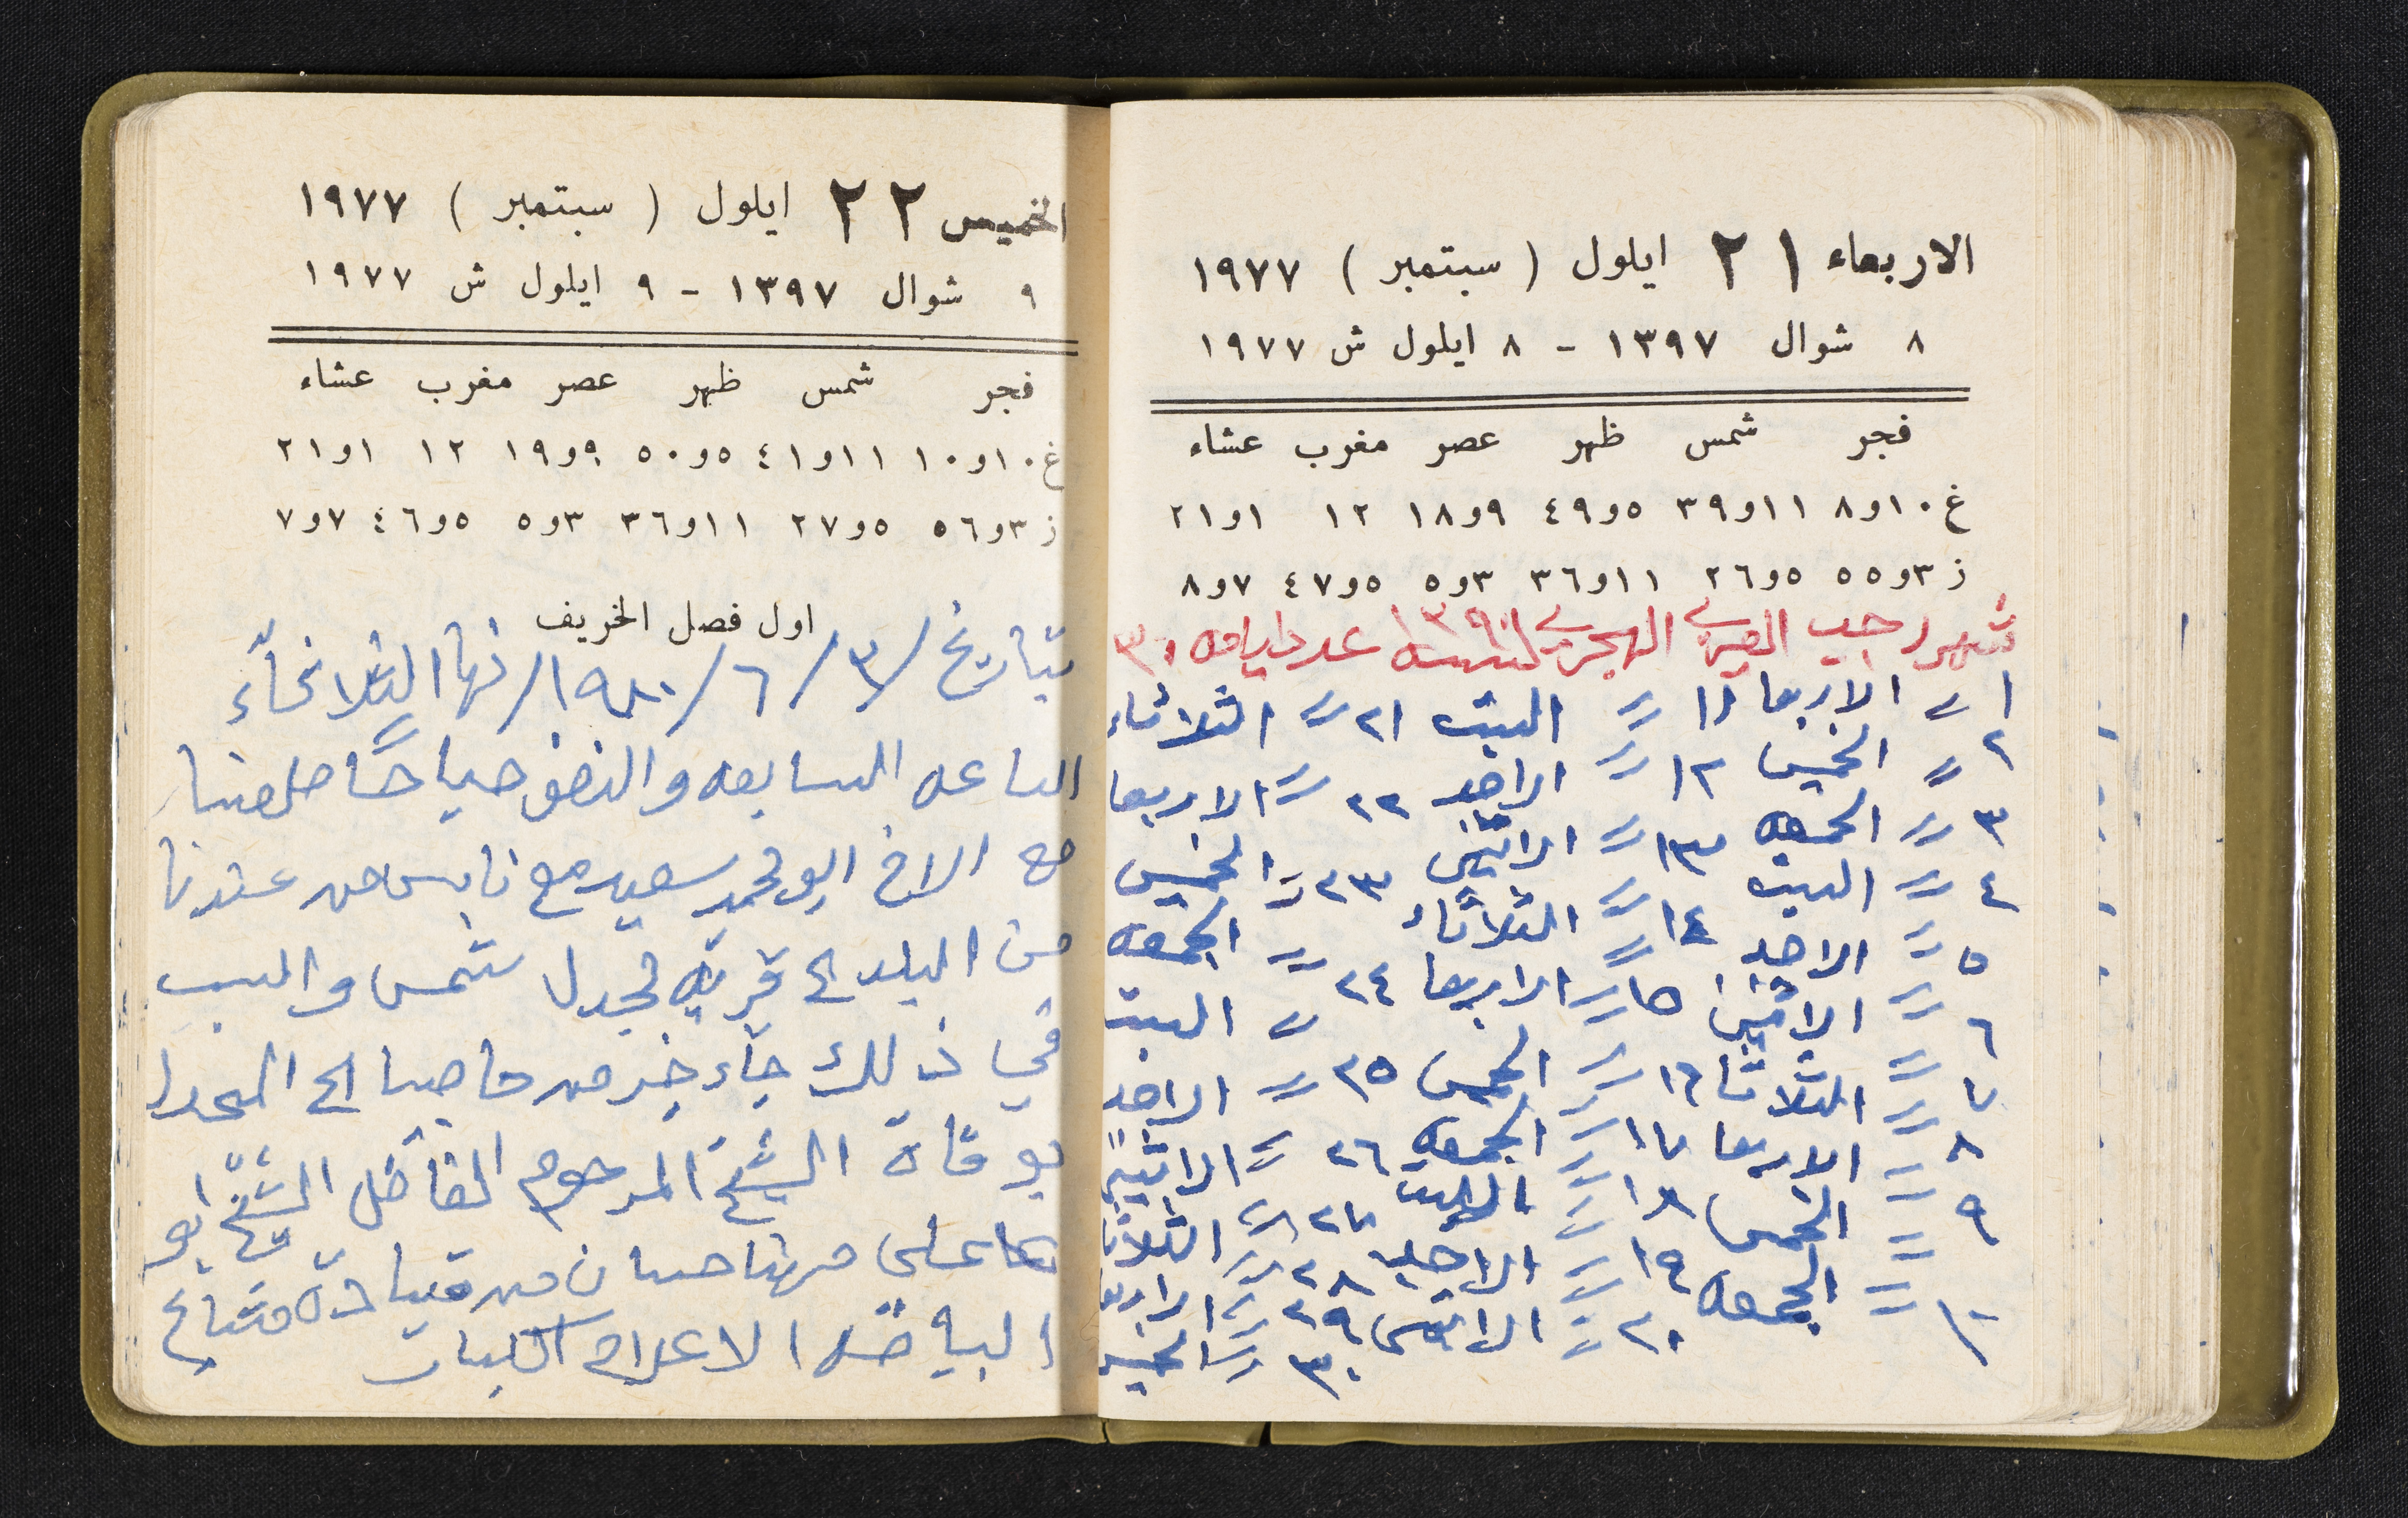 الاربعاء ٢١ ايلول ( سبتمبر ) ١٩٧٧
٨ شوال ١٣٩٧ - ٨ ايلول ش ١٩٧٧
فجر شمس ظهر عصر مغرب عشاء
غ ١٠و٨ ١١و٣٩ ٥و٤٩ ٩و١٨ ١٢ ١و٢١
ز ٣و٥٥ ٥و٢٦ ١١و٣٦ ٣و٥ ٥و٤٧ ٧و٨
شهر رجب العربي الهجري لسنة عدد ايامه ٣٠
١〃 الاربعا ١١〃 السبت ٢١〃 الثلاثاء
٢〃 الخميس ١٢〃 الاحد ٢٢〃 الاربعا
٣〃 الجمعه ١٣〃 الاثنين ٢٣〃 الخميس
٤〃 السبت ١٤〃 الثلاثاء ٢٤〃 الجمعه
٥〃 الاحد ١٥〃 الاربعا ٢٥〃 السبت
٦〃 الاثنين ١٦〃 الخميس ٢٦〃 الاحد
٧〃 الثلاثا ١٧〃 الجمعه ٢٧〃 الاثنين
٨〃 الاربعا ١٨〃 السبت ٢٨〃 الثلاثا
٩〃 الخميس ١٩〃 الاحد ٢٩〃 الاربعا
١٠〃 الجمعه ٢٠〃 الاثنين ٣٠〃 الخميس
الخميس ٢٢ ايلول ( سبتمبر ) ١٩٧٧
٩ شوال ١٣٩٧ - ٩ ايلول ش ١٩٧٧
فجر شمس ظهر عصر مغرب عشاء
غ ١٠و١٠ ١١و٤١ ٥و٥٠ ٩و١٩ ١٢ ١و٢١
ز ٣و٥٦ ٥و٢٧ ١١و٣٦ ٣و٥ ٥و٤٦ ٧و٧
اول فصل الخريف
بتاريخ /٣/ ٦/ ١٩٨٠/ نهار الثلاثاء
الساعه السابعه والنصف صباحًا طلعنا
مع الاخ ابو محمد سعيد مع ناس من عندنا
من البلد الى قرية مجدل شمس والسبب
في ذلك جاء خبر من حاصبيا الى المجدل
بوفاة الشيخ المرحوم الفاضل الشيخ ابو
علي مهنا حسان من قيادة مشايخ
البياضه الاعلام الكبار